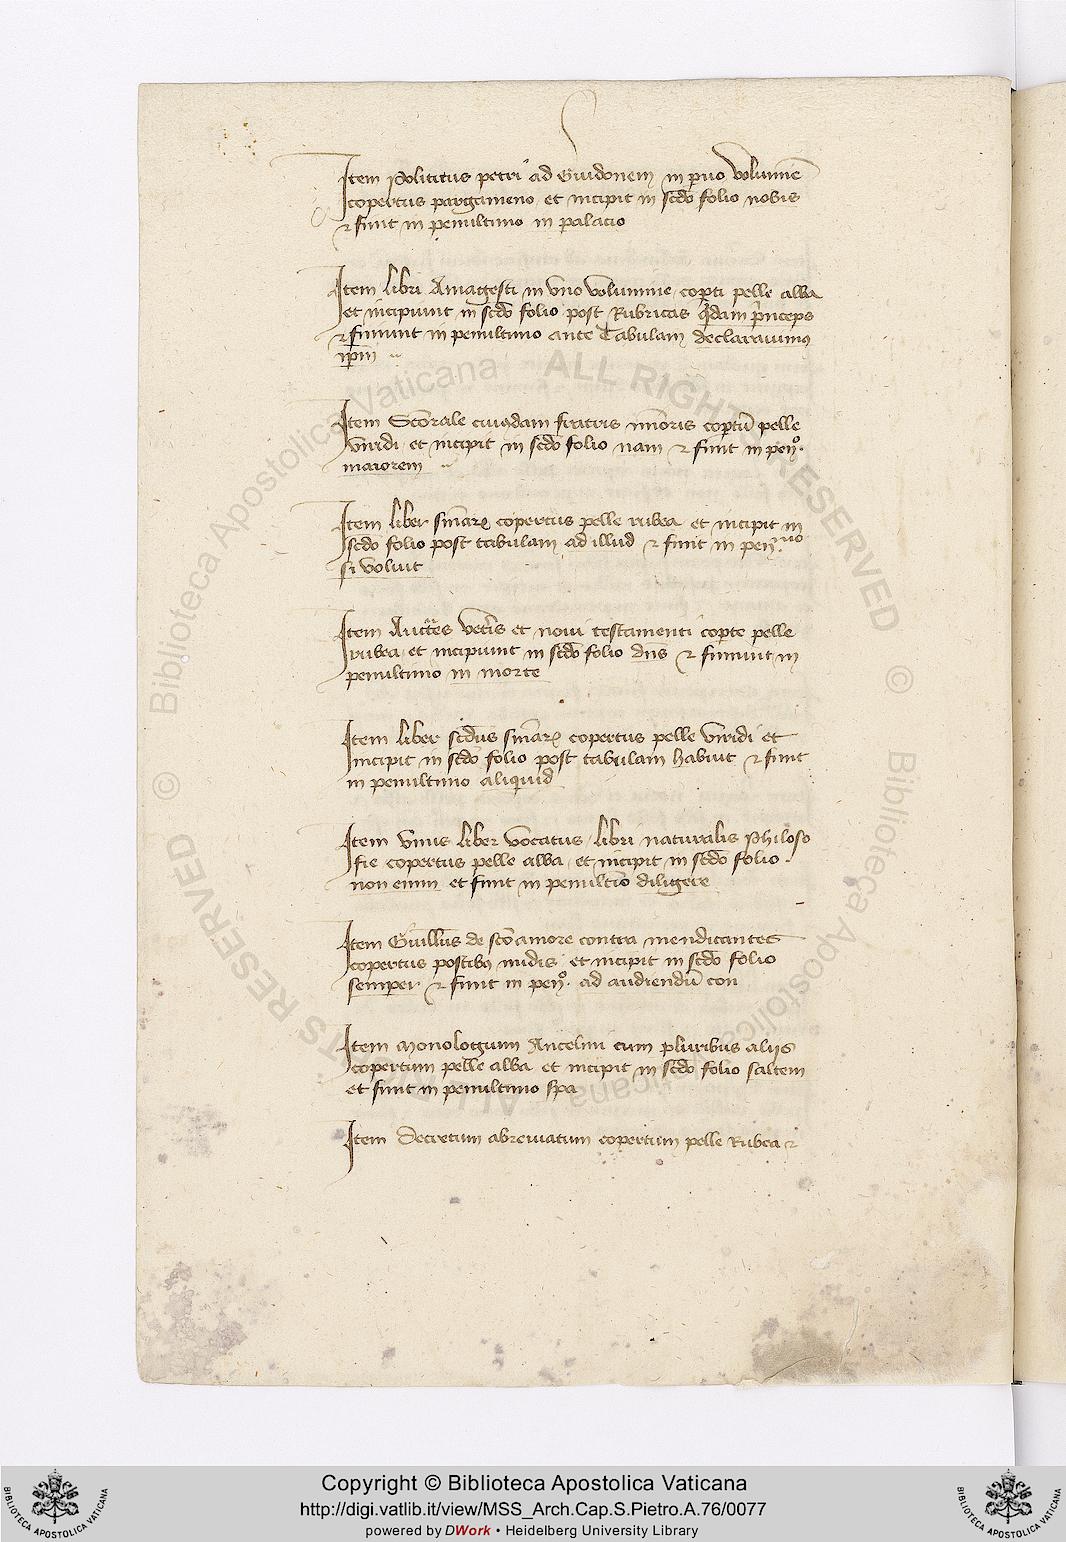 Item Policitus petri ad Guidonem in paruo volumine
copertus pargameno et incipit in scdo folio nobis
et finit in penultimo in palacio
Item libri Amagesti in vno volumine copti pelle alba
et incipiunt in scdo folio post Rubricas qdam princeps
et finiunt in penultimo ante Tabulam declarauimus
ipm
Item Sermonale cuiusdam fratris minoris coptu pelle
viridi et incipit in scdo folio nam et finit in penº
maiorem
Item liber sniarum copertus pelle rubea et incipit in
scdo folio post tabulam ad illud et finit in penuo
si voluit
Item Auctes veteris et noui testamenti coperte pelle
rubea et incipiunt in scdo folio dns et finiunt in
penultimo in morte
Item liber scdus sniarum copertus pelle viridi et
incipit in scdo folio post tabulam habuit et finit
in penultimo aliquid
Item vnus liber vocatus libri naturalis philoso
fie copertus pelle alba et incipit in scdo folio
non enim et finit in penultio diligere
Item Guillus de sco amore contra mendicantes
copertus postibus nudis et incipit in scdo folio
semper et finit in penº ad audiendu con
Item monologium Ancelmi cum pluribus aliis
copertum pelle alba et incipit in scdo folio saltem
et finit in penultimo spa
Item Decretum abreuiatum copertum pelle Rubea et
© Biblioteca Apostolica Vaticana ALL RIGHTS RESERVED © Biblioteca Apostolica Vaticana ALL RIGHTS RESERVED
Copyright © Biblioteca Apostolica Vaticana
http://digi.vatlib.it/view/MSS_Arch.Cap.S.Pietro.A.76/0077
powered by DWork • Heidelberg University Library
BIBLIOTECA APOSTOLICA VATICANA
BIBLIOTECA APOSTOLICA VATICANA